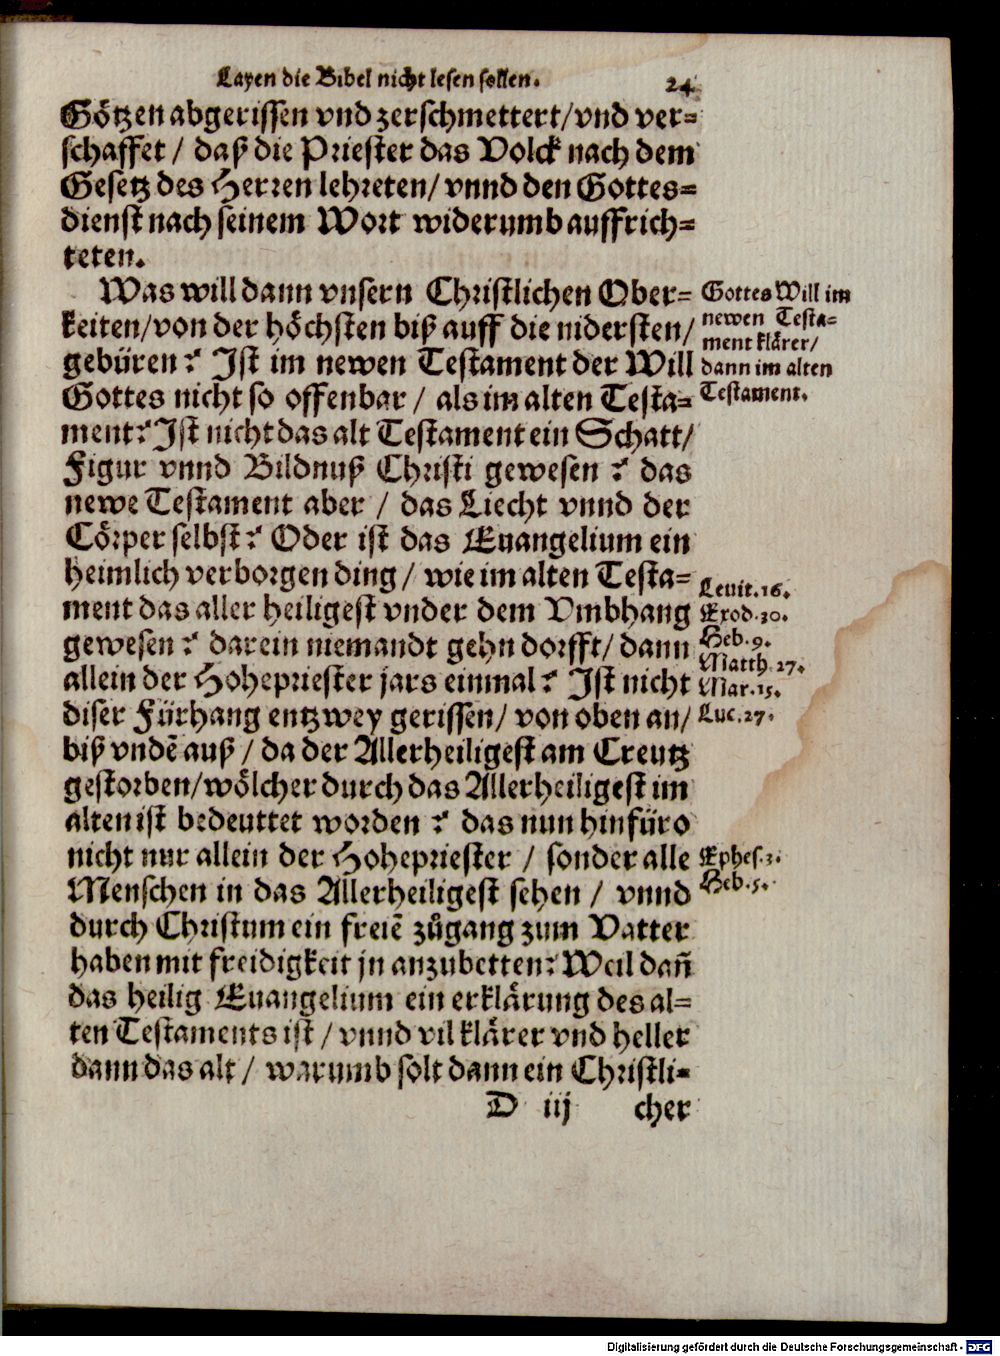 Layen die Bibel nicht lesen sollen. 24
Götzen abgerissen vnd zerschmettert/vnd ver-
schaffet / daß die Priester das Volck nach dem
Gesetz des Herren lehreten/ vnnd den Gottes-
dienst nach seinem Wort widerumb auffrich-
teten.
Was will dann vnsern Christlichen Ober-
keiten/von der höchsten biß auff die nidersten/
gebüren? Ist im newen Testament der Will
Gottes nicht so offenbar / als im alten Testa-
ment? Ist nicht das alt Testament ein Schatt/
Figur vnnd Bildnuß Christi gewesen? das
newe Testament aber / das Liecht vnnd der
Cörper selbst? Oder ist das Euangelium ein
heimlich verborgen ding / wie im alten Testa-
ment das aller heiligest vnder dem Vmbhang
gewesen? darein niemandt gehn dorfft/ dann
allein der Hohepriester jars einmal? Ist nicht
diser Fürhang entzwey gerissen/ von oben an/
biß vndē auß / da der Allerheiligest am Creutz
gestorben/wölcher durch das Allerheiligest im
alten ist bedeuttet worden? das nun hinfüro
nicht nur allein der Hohepriester / sonder alle
Menschen in das Allerheiligest sehen / vnnd
durch Christum ein freiē zůgang zum Vatter
haben mit freidigkeit jn anzubetten? Weil dañ
das heilig Euangelium ein erklärung des al-
ten Testaments ist / vnnd vil klärer vnd heller
dann das alt / warumb solt dann ein Christli-
D iij cher
Gottes Will im
newen Testa-
ment klärer/
dann im alten
Testament.
Leuit.16.
Exod.30.
Heb.9.
Matth.27.
Mar.15.
Luc.27.
Ephes.3.
Heb.5.
Digitalisierung gefördert durch die Deutsche Forschungsgemeinschaft - DFG